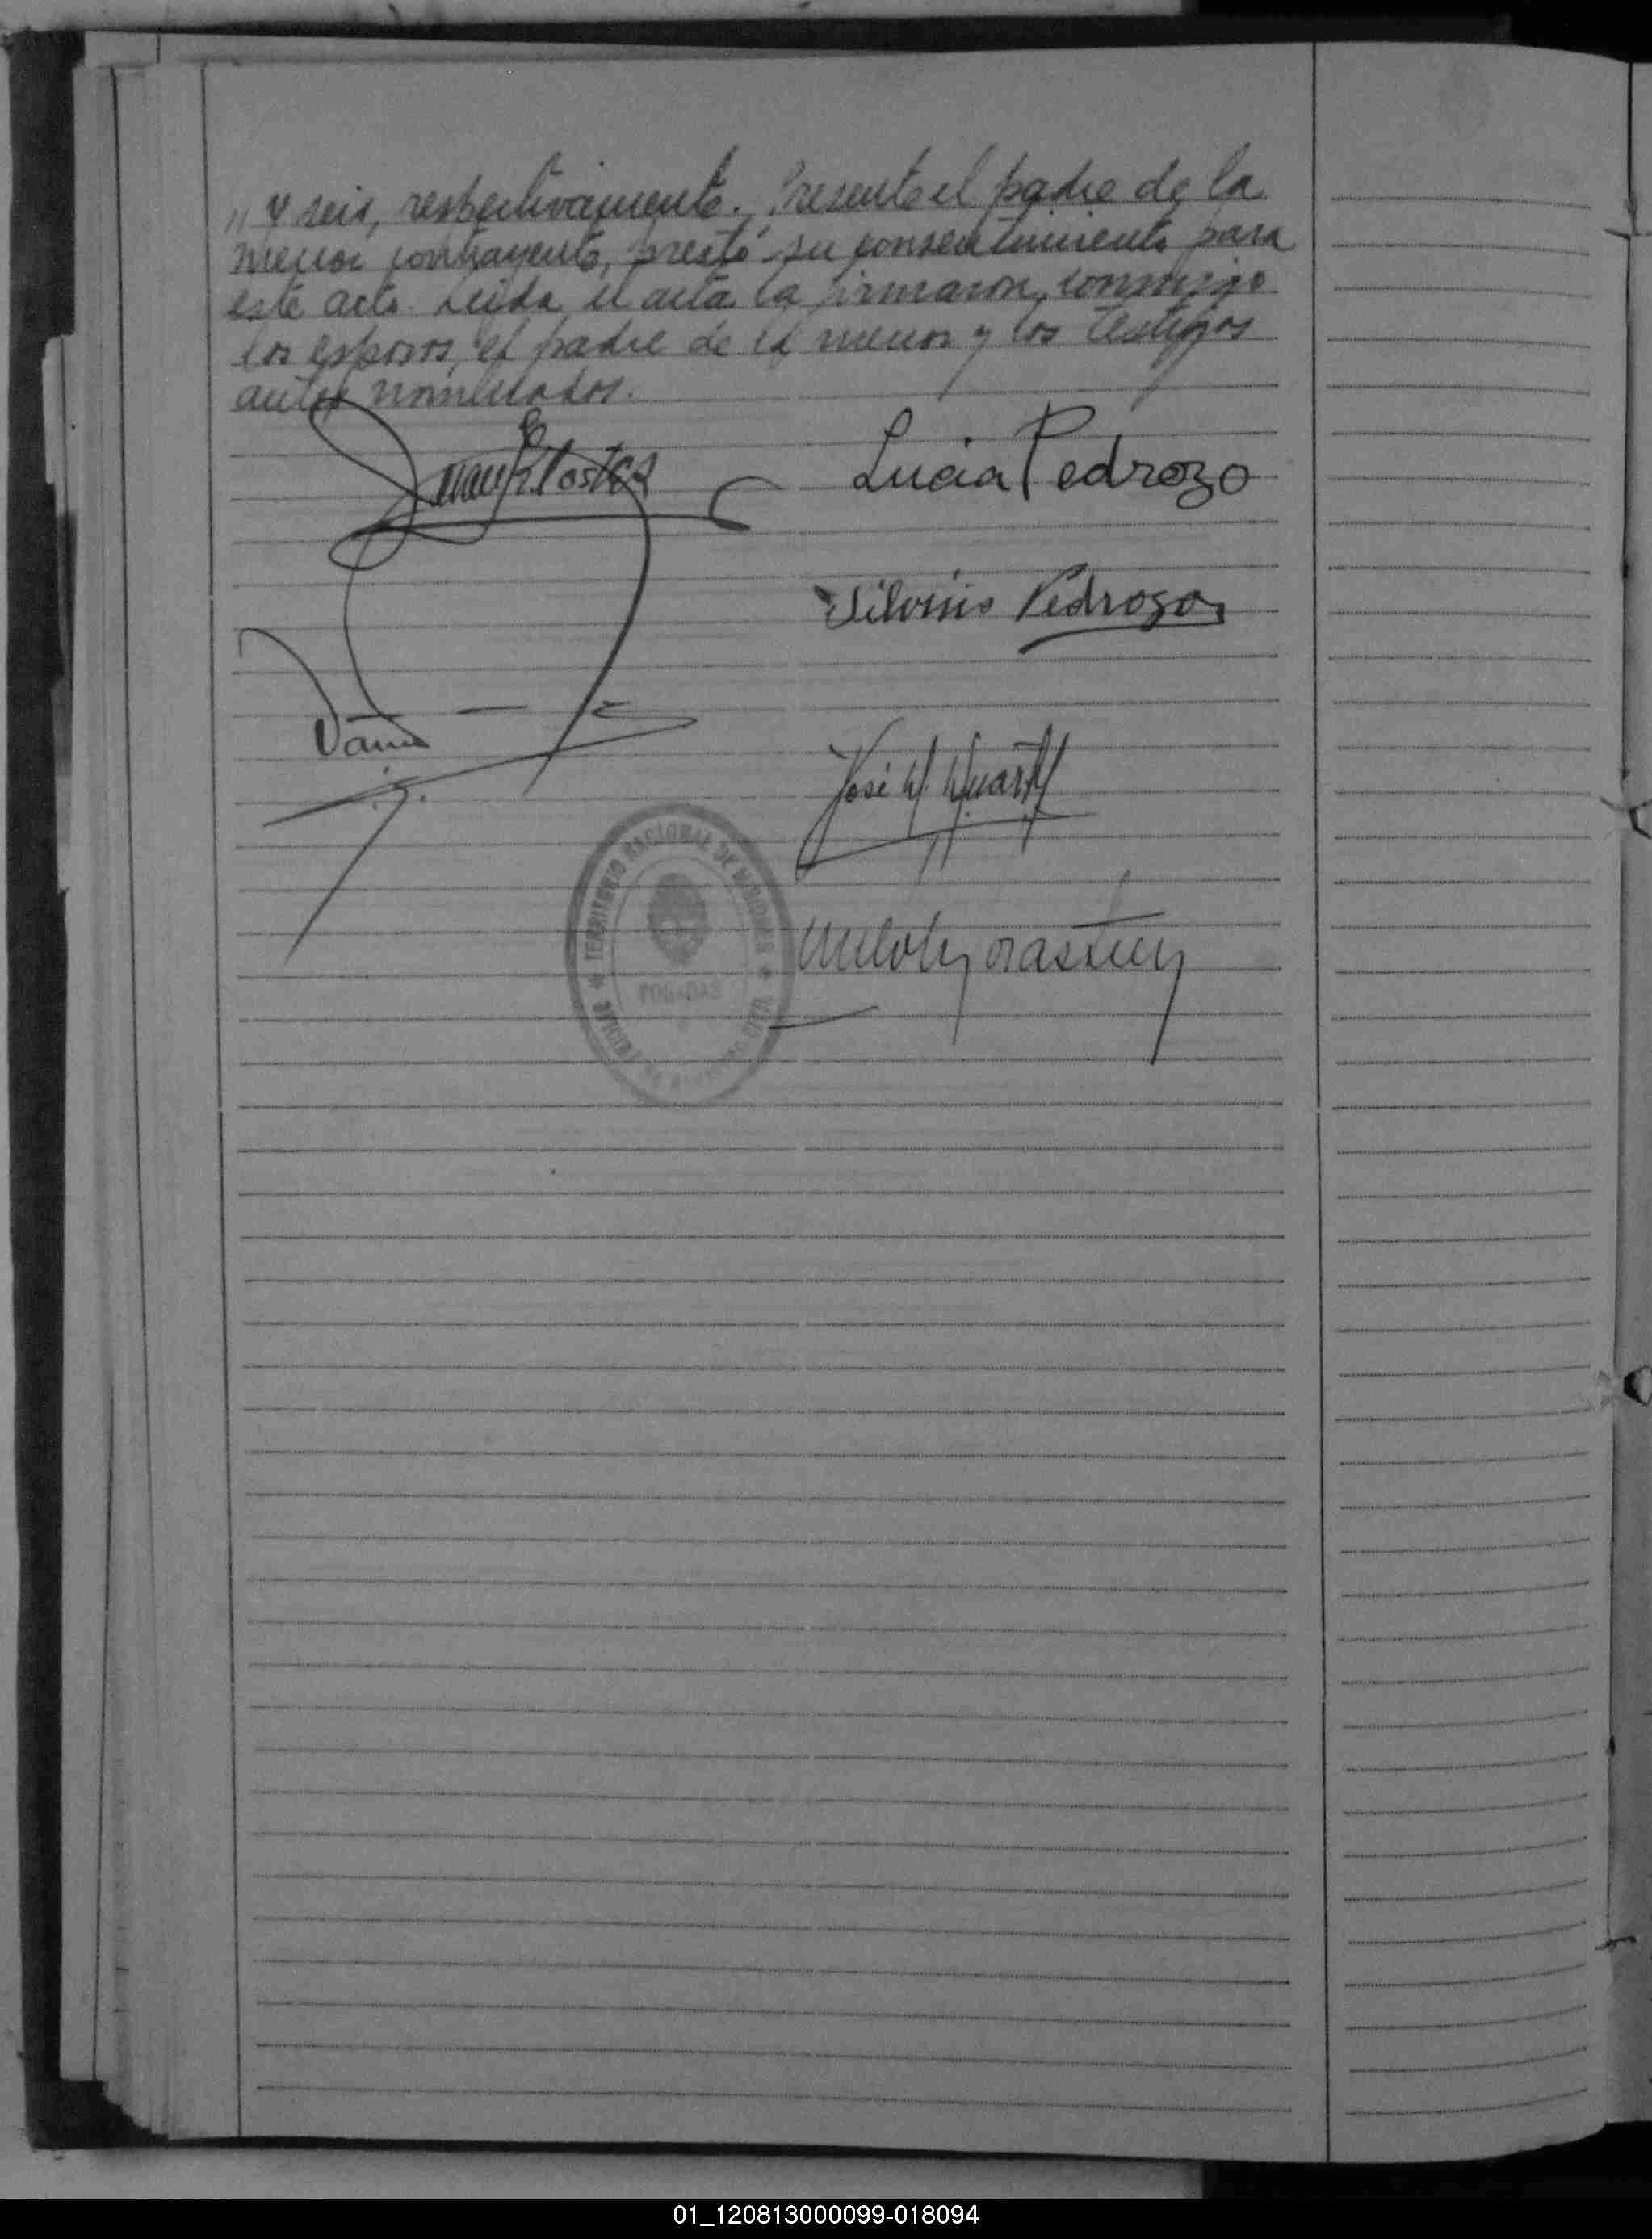 " y seis, respectivamente. Presente el padre de la
menor contrayente, prestó su consentimiento para
este acto. Leida el acta la firmaron, conmigo
los esposos, el padre de la menor y los testigos
antes nombrados.
Lucia Pedrozo
Silvinio Pedrozo
José
TERRITORIO NACIONAL DE MISIONES
POSADAS
01_120813000099-018094